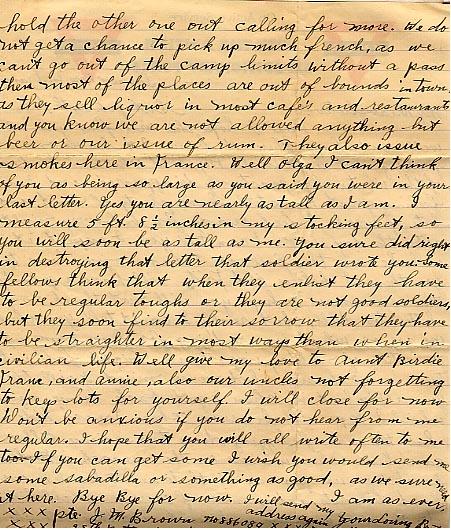 hold the other one out calling for more. We do
not get a chance to pick up much french, as we
can't go out of the camp limits without a pass
then most of the places are out of bounds in town.
as they sell liquor in most cafe's and restaurants
and you know we are not allowed anything but
beer or our issue of rum. They also issue
smokes here in France. Well Olga I can't think
of you as being so large as you said you were in your
last letter. Yes you are nearly as tall as I am. I
measure 5 ft. 8 1/2 inches in my stocking feet, so
you will soon be as tall as me. You sure did right
in destroying that letter that soldier wrote you. Some
fellows think that when they enlist they have
to be regular toughs or they are not good soldiers,
but they soon find to their sorrow that they have
to be straighter in most ways than when in
civilian life. Well give my love to Aunt Birdie
Franc, and annie, also our uncles not forgetting
to keep lots for yourself I will close for now
Won't be anxious if you do not hear from me
regular. I hope that you will all write often to me
too. If you can get some I wish you would send me
some sabadilla or something as good, as we sure need
it here. Bye Bye for now. I will send my I am as ever,
address again your loving
x x x Pte. J. M. Brown no 886089